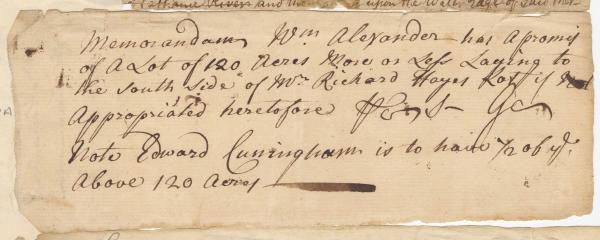 and the upon the Water Edge of Said
Memorandam Wm Alexander has a promis
of A Lot of 120 Acres More or Less Laying to
the South Side of Mr Richard Hayes Lot if Not
Appropriated heretofore
Note Edward Cuningham is to have 1/2 of ye
Above 120 Acres